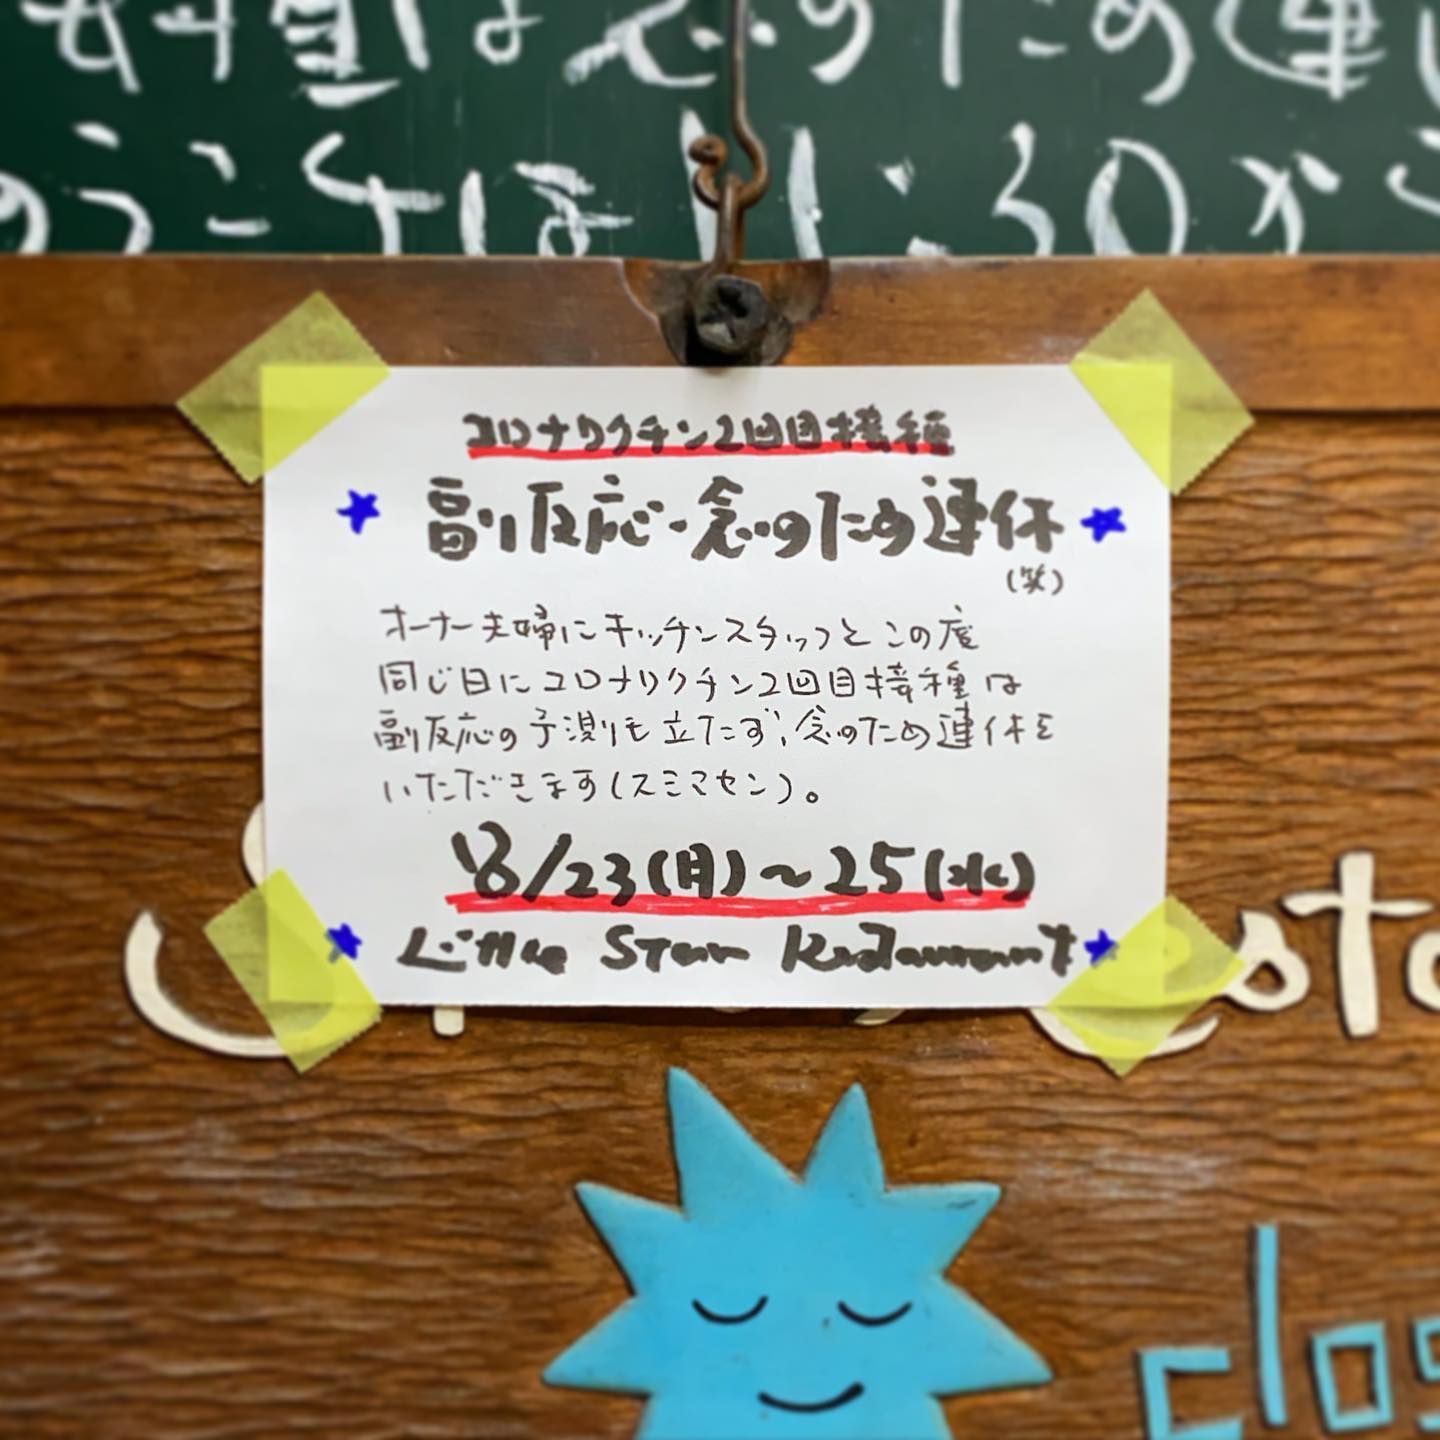 のランチは11:30か
コロナワクチン2回目接種
副反応・念のため連休
(笑)
オーナー夫婦にキッチンスタッフとこの度
同じ日にコロナワクチン2回目接種は
副反応の予測も立たず、念のため連休を
いただきます(スミマセン)。
8/23(月)〜25(水)
Little Star Restaurant
clos